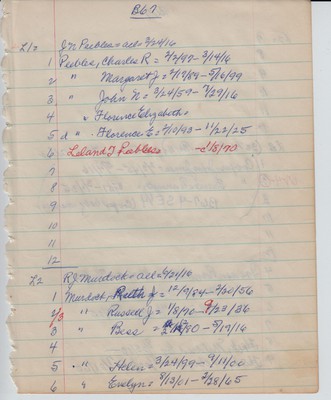 B67
L1 J.N. Peebles = acl = 3/24/16
1 Peebles, Charles R = 2/2/92 - 3/14/16
2 " Margaret J = 2/17/89 - 5/16/99
3 " John N = 3/24/59 - 7/29/16
4 " Florence Elizabeth =
5 d " Florence E = 2/10/93 - 11/22/25
6 Leland T Peebles - 1/8/70
7
8
9
10
11
12
L2 R.J. Murdock = acl = 6/21/16
1 Murdock, Ruth J = 12/9/84 - 2/20/56
2/3 " Russell J = 1/8/90 - 9/23/36
3 " Bess = 80 - 5/19/16
4
5 " Helen = 3/24/99 - 9/11/00
6 " Evelyn = 8/13/01 - 2/28/65